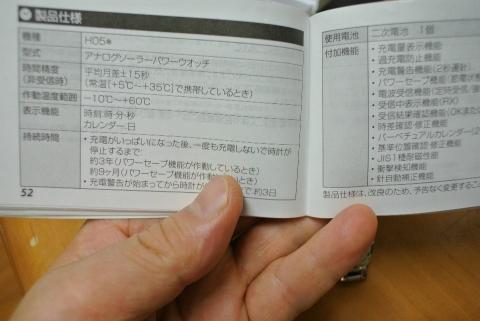 製品仕様
機種 H05*
型式 アナログソーラーパワーウオッチ
時間精度 平均月差±15秒
(非受信時) (常温[+5℃~+35℃]で携帯しているとき)
作動温度範囲 -10℃~+60℃
表示機能 時刻:時・分・秒
カレンダー:日
持続時間 ・充電がいっぱいになった後、一度も充電しないで時計が
停止するまで:
約3年(パワーセーブ機能が作動しているとき)
約9ヶ月(パワーセーブ機能が作動 とき)
・充電警告が始まってから時計が で:約3日
52
使用電池 二次電池 1個
付加機能 ・充電量表示機能
・過充電防止機能
・充電警告機能(2秒運針)
・パワーセーブ機能(節電
・電波受信機能(定時受信/
・受信中表示機能(RX)
・受信結果確認機能(OKまた
・時差確認・修正機能
・パーペチュアルカレンダー(2
・基準位置確認・修正機能
・JIS1種耐磁性能
・衝撃検知機能
・針自動補正機能
製品仕様は、改良のため、予告なく変更するこ